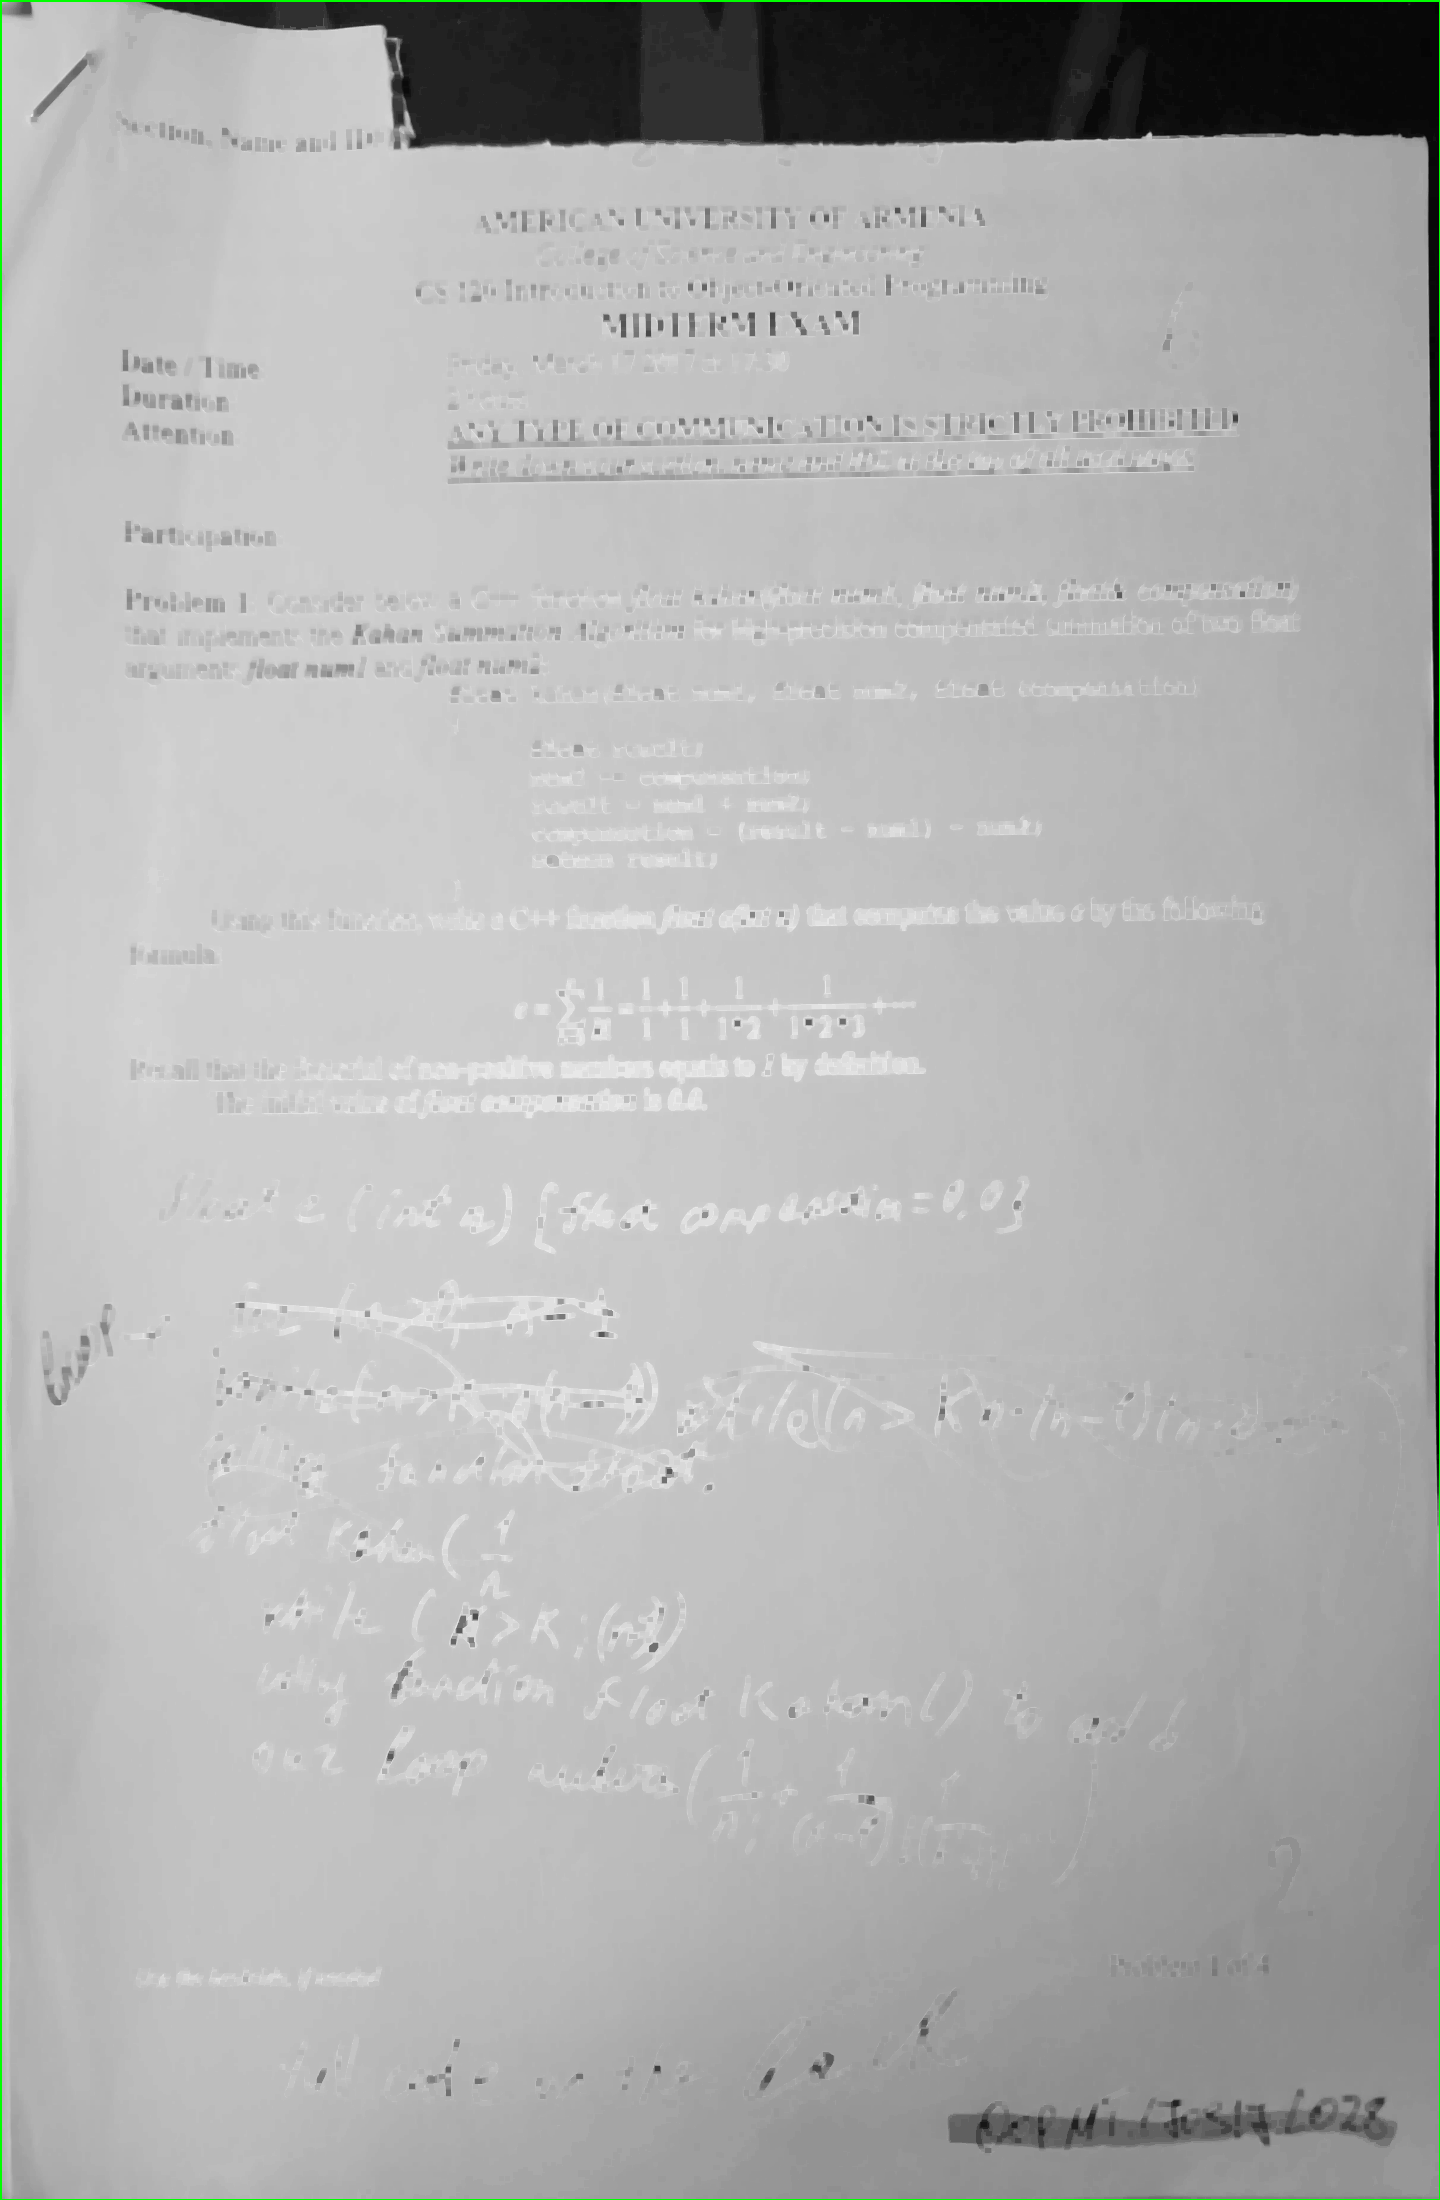 Section, Name and ID#
AMERICAN UNIVERSITY OF ARMENIA
College of Science and Engineering
CS 120 Introduction to Object-Oriented Programming
MIDTERM EXAM
Date / Time Friday, March 17 2017 at 17:30
Duration 2 hours
Attention ANY TYPE OF COMMUNICATION IS STRICTLY PROHIBITED
Write down your section, name and ID# at the top of all used pages
Participation
Problem 1. Consider below a C++ function float kahan(float num1, float num2, float& compensation)
that implements the Kahan Summation Algorithm for high-precision compensated summation of two float
arguments float num1 and float num2:
float kahan(float num1, float num2, float &compensation)
{
float result;
num2 -= compensation;
result = num1 + num2;
compensation = (result - num1) - num2;
return result;
}
Using this function, write a C++ function float e(int n) that computes the value e by the following
formula:
e = ∑ 1/i! = 1/1 + 1/1 + 1/1*2 + 1/1*2*3 + ...
Recall that the factorial of non-positive numbers equals to 1 by definition.
The initial value of float compensation is 0.0.
float e (int n) {float compensation = 0.0}
loop
while (n > K n·(n-1)(n-2)
function float.
float Kahan( 1/n
while ( > K ;
calling function float Kahan() to add
our Loop numbers ( 1/n; +
2
Use the backside, if needed Problem 1 of 4
full code on the back
OOP MT.170317.L028